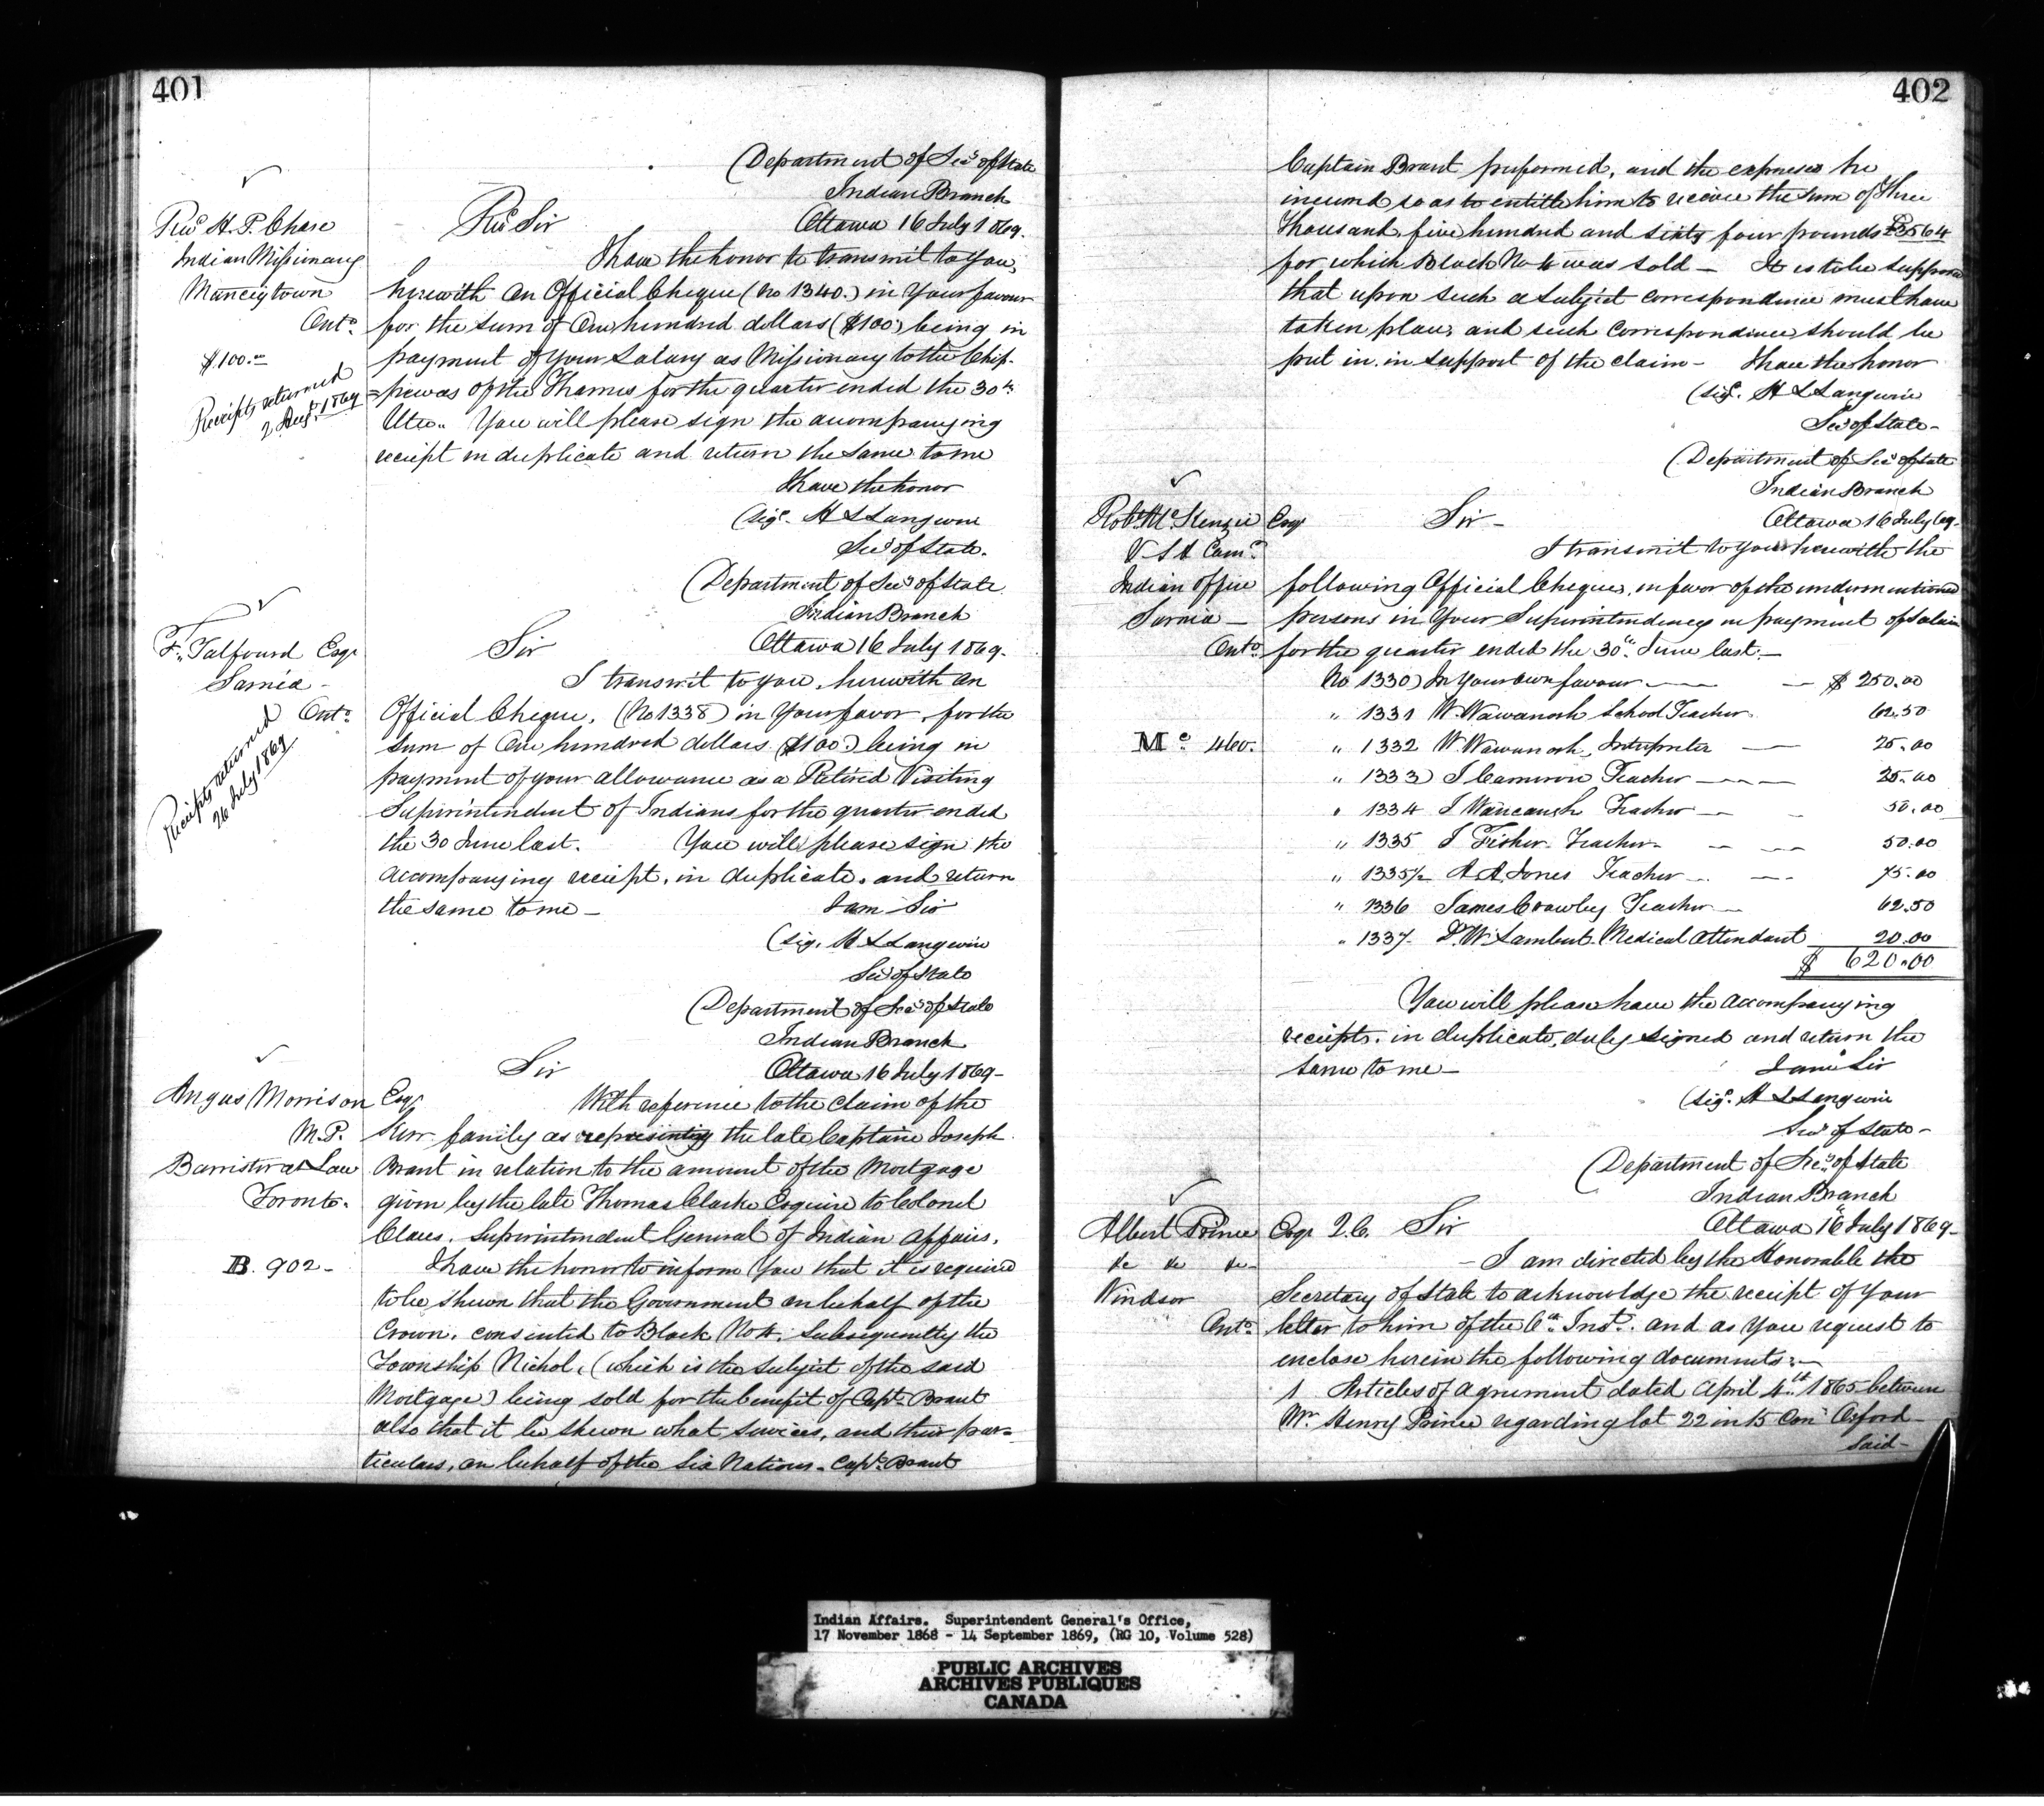 401
Department of Secy of State
Indian Branch
Ottawa 16 July 1869.
Revd H. P. Chase
Indian Missionary
Munceytown
Onto.
$100.00
Receipts returned
2 Augt. 1869
Revd Sir
I have the honor to transmit to you,
herewith an Official Cheque (No 1340.) in Your favour
for the sum of One hundred dollars ($100.) being in
payment of your Salary as Missionary to the Chip-
=pewas of the Thames for the quarter ended the 30th
Ulto. You will please sign the accompanying
receipt in duplicate and return the same to me
I have the honor
(sigd. H L Langevin
Secy of State.
Department of Secy of State
Indian Branch
Ottawa 16 July 1869.
F. Talfourd Esqr
Sarnia -
Onto.
Receipts returned
26 July 1869
Sir
I transmit to you, herewith an
Official Cheque, (No 1338) in Your favor, for the
sum of One hundred dollars ($100.) being in
payment of your allowance as a Retired Visiting
Superintendent of Indians for the quarter ended
the 30 June last. You will please sign the
accompanying receipt, in duplicate, and return
the same to me -
I am Sir
(sig. H L Langevin
Secy of State
Department of Secy of State
Indian Branch
Ottawa 16 July 1869-
Angus Morrison Esqr
M.P.
Barrister at Law
Toronto.
B. 902-
Sir
With reference to the claim of the
Kerr family as representing the late Captain Joseph
Brant in relation to the amount of the Mortgage
given by the late Thomas Clarke Esquire to Colonel
Claus, Superintendent General of Indian Affairs,
I have the honor to inform you that it is required
to be shewn that the Government on behalf of the
Crown, consented to Block No 4, subsequently the
Township Nichol, (which is the subject of the said
Mortgage) being sold for the benefit of Capt. Brant
also that it be shewn what services, and their par=
ticulars, on behalf of the Six Nations, Capt. Brant
402
Captain Brant preformed, and the expenses he
incurred so as to entitle him to receive the sum of Three
Thousand five hundred and sixty four pounds £3564
for which Block No 4 was sold - It is to be supposed
that upon such a subject correspondence must have
taken place, and such correspondence should be
put in, in support of the claim - I have the honor
(sigd. H L Langevin
Secy of State -
Department of Secy of State
Indian Branch
Ottawa 16 July 69-
Robt. McKenzie Esqr
V S & Comr.
Indian Office
Sarnia -
Onto.
Mc 460.
Sir -
I transmit to you herewith the
following Official Cheques, in favor of the undermentioned
persons in Your Superintendency in payment of Salaries
for the quarter ended the 30th June last.-
No 1330) In Your own favour - $ 250.00
" 1331 W. Wawanosh School Teacher 62.50
" 1332 W Wawanosh, Interpreter 25.00
" 1333) J Cameron Teacher 25.00
" 1334 J Teacher 50.00
" 1335 J Fisher Teacher 50.00
" 1335½ A. A. Jones Teacher 75.00
" 1336 James Crawley Teacher 62.50
" 1337 Dr W. Lambert Medical Attendant 20.00
$ 620.00
You will please have the accompanying
receipts, in duplicate, duly signed and return the
same to me -
I am Sir
(sigd. H L Langevin
Secy of State -
Department of Secy of State
Indian Branch
Ottawa 16th July 1869-
Albert Prince Esqr Q.C.
&c &c &c
Windsor
Onto.
Sir
- I am directed by the Honorable the
Secretary of State to acknowledge the receipt of your
letter to him of the 6th Inst. and as you request to
enclose herein the following documents:-
1 Articles of agreement dated April 4th 1865 between
Mr. Henry Prince regarding lot 22 in 15 Con Oxford -
Said -
Indian Affairs. Superintendent General's Office,
17 November 1868 - 14 September 1869, (RG 10, Volume 528)
PUBLIC ARCHIVES
ARCHIVES PUBLIQUES
CANADA